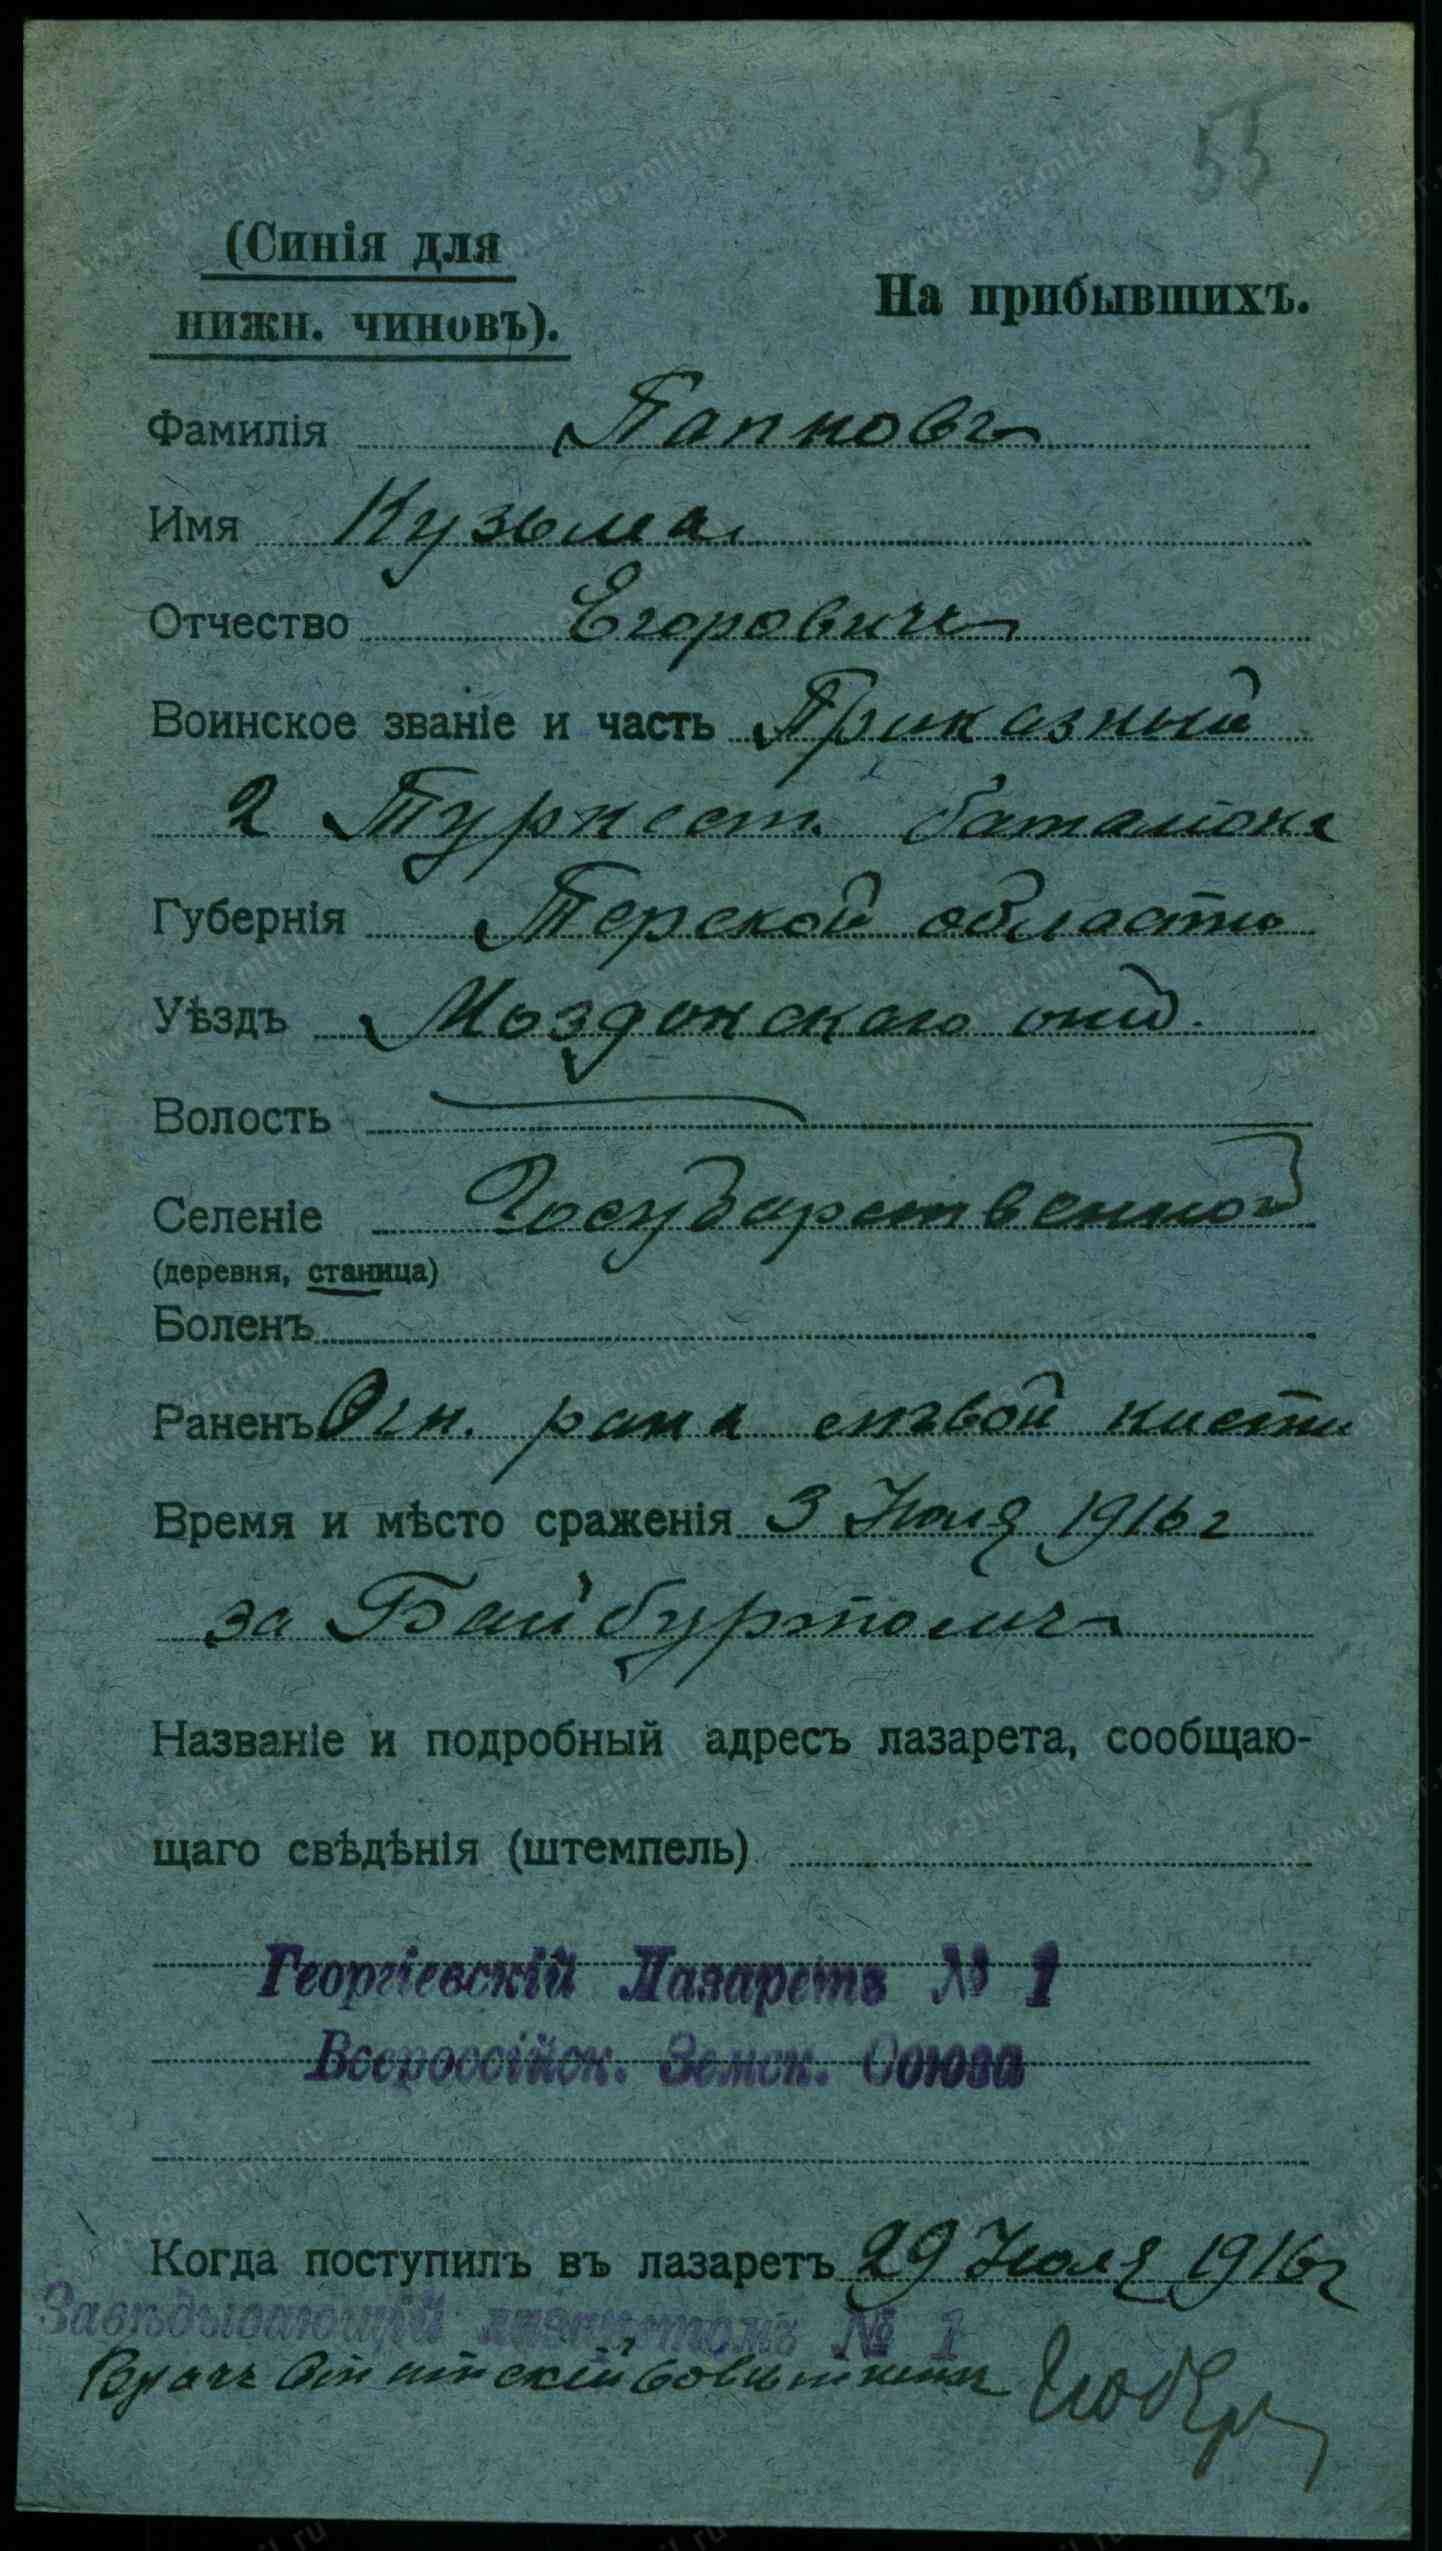 55
(Синія для
нижн. чиновъ).
На прибывшихъ.
Фамилія Папковъ
Имя Кузьма
Отчество Егоровичъ
Воинское званіе и часть Приказный
2 Туркест. баталіона
Губернія Терской области
Уѣздъ Моздокскаго отд.
Волость
Селеніе Государственной
(деревня, станица)
Боленъ
Раненъ Огн. рана лѣвой кисти
Время и мѣсто сраженія 3 Июля 1916 г
за Байбуртомъ
Названіе и подробный адресъ лазарета, сообщаю-
щаго свѣдѣнія (штемпель)
Георгіевскій Лазаретъ № 1
Всероссійск. Земск. Союза
Когда поступилъ въ лазаретъ 29 Июля 1916 г
Завѣдывающій лазаретомъ № 1
Врачъ